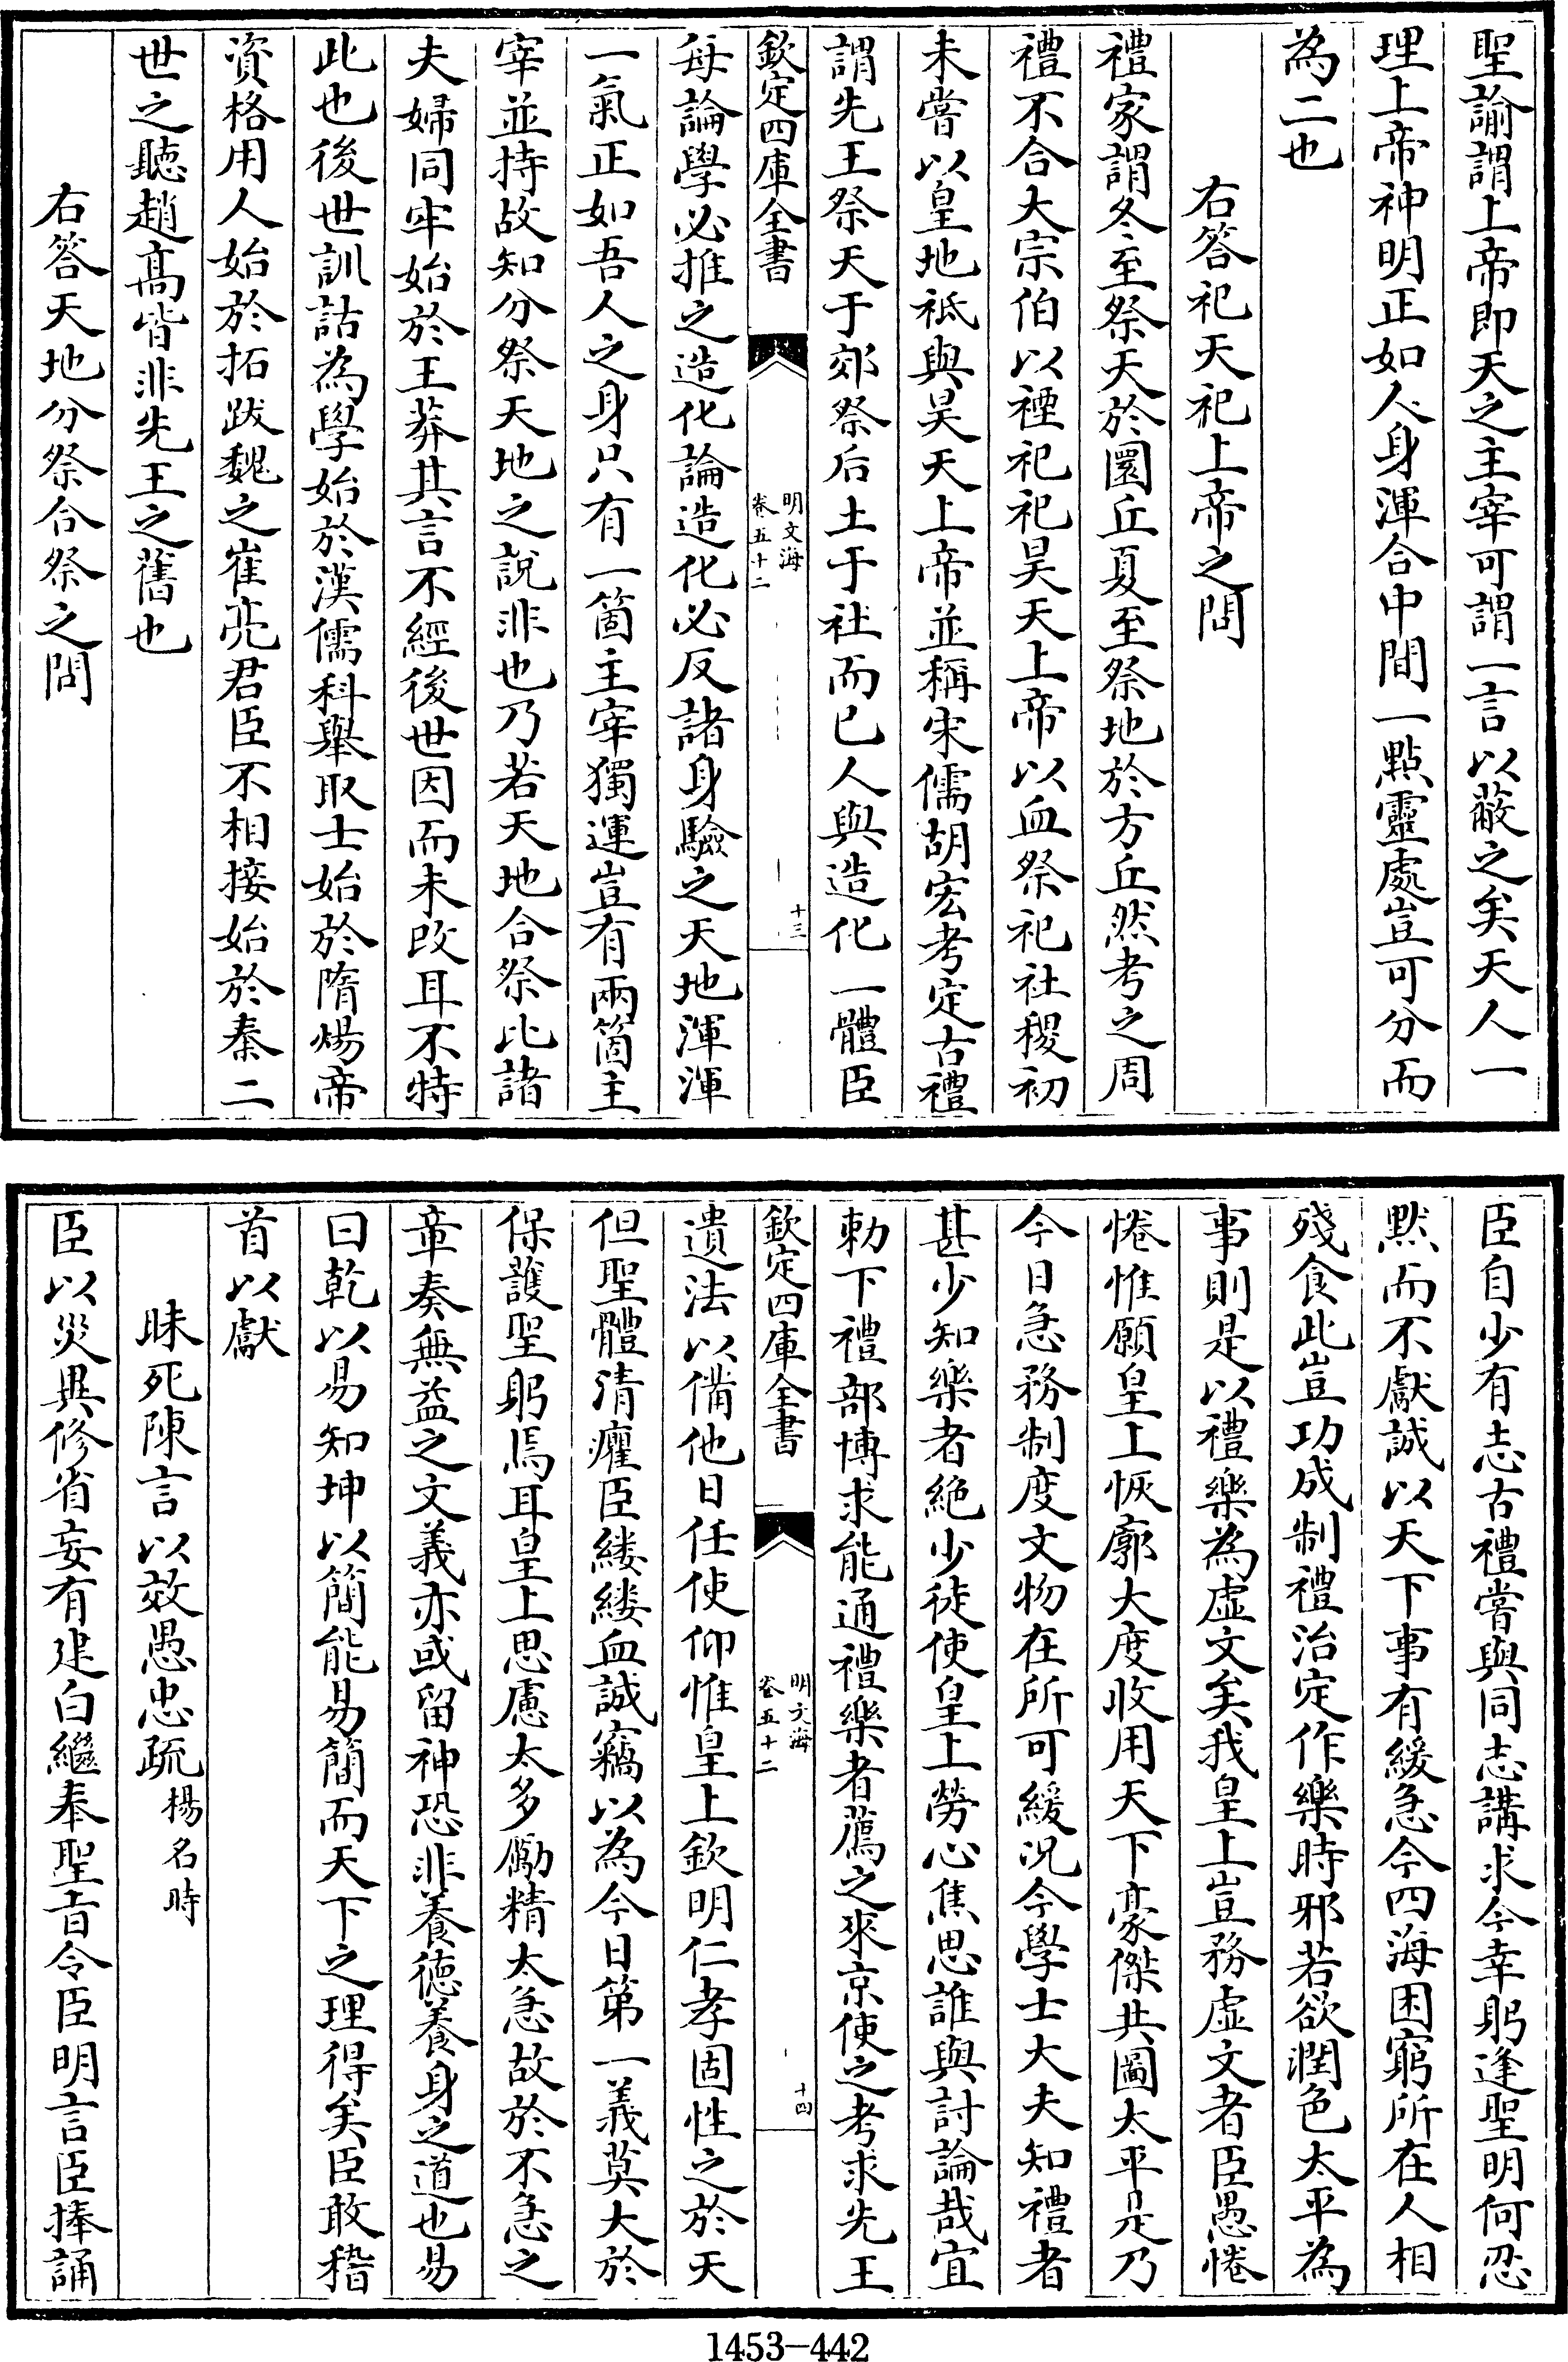 聖諭謂上帝即天之主宰可謂一言以蔽之矣天人一
理上帝神明正如人身渾合中間一點靈處豈可分而
為二也
右答祀天祀上帝之問
禮家謂冬至祭天於圜丘夏至祭地於方丘然考之周
禮不合大宗伯以禋祀祀昊天上帝以血祭祀社稷初
未嘗以皇地祇與昊天上帝並稱宋儒胡宏考定古禮
謂先王祭天于郊祭后土于社而已人與造化一體臣
欽定四庫全書
明文海
卷五十二
十三
每論學必推之造化論造化必反諸身驗之天地渾渾
一氣正如吾人之身只有一箇主宰獨運豈有兩箇主
宰並持故知分祭天地之說非也乃若天地合祭比諸
夫婦同牢始於王莽其言不經後世因而未改耳不特
此也後世訓詁為學始於漢儒科舉取士始於隋煬帝
資格用人始於拓跋魏之崔亮君臣不相接始於秦二
世之聽趙高皆非先王之舊也
右答天地分祭合祭之問
臣自少有志古禮嘗與同志講求今幸躬逢聖明何忍
默而不獻誠以天下事有緩急今四海困窮所在人相
殘食此豈功成制禮治定作樂時邪若欲潤色太平為
事則是以禮樂為虛文矣我皇上豈務虛文者臣愚惓
惓惟願皇上恢廓大度收用天下豪傑共圖太平是乃
今日急務制度文物在所可緩況今學士大夫知禮者
甚少知樂者絕少徒使皇上勞心焦思誰與討論哉宜
勅下禮部博求能通禮樂者薦之來京使之考求先王
欽定四庫全書
明文海
卷五十二
十四
遺法以備他日任使仰惟皇上欽明仁孝固性之於天
但聖體清癯臣縷縷血誠竊以為今日第一義莫大於
保護聖躬焉耳皇上思慮太多勵精太急故於不急之
章奏無益之文義亦或留神恐非養德養身之道也易
曰乾以易知坤以簡能易簡而天下之理得矣臣敢稽
首以獻
昧死陳言以效愚忠疏 楊名時
臣以災異修省妄有建白繼奉聖旨令臣明言臣捧誦
1453-442